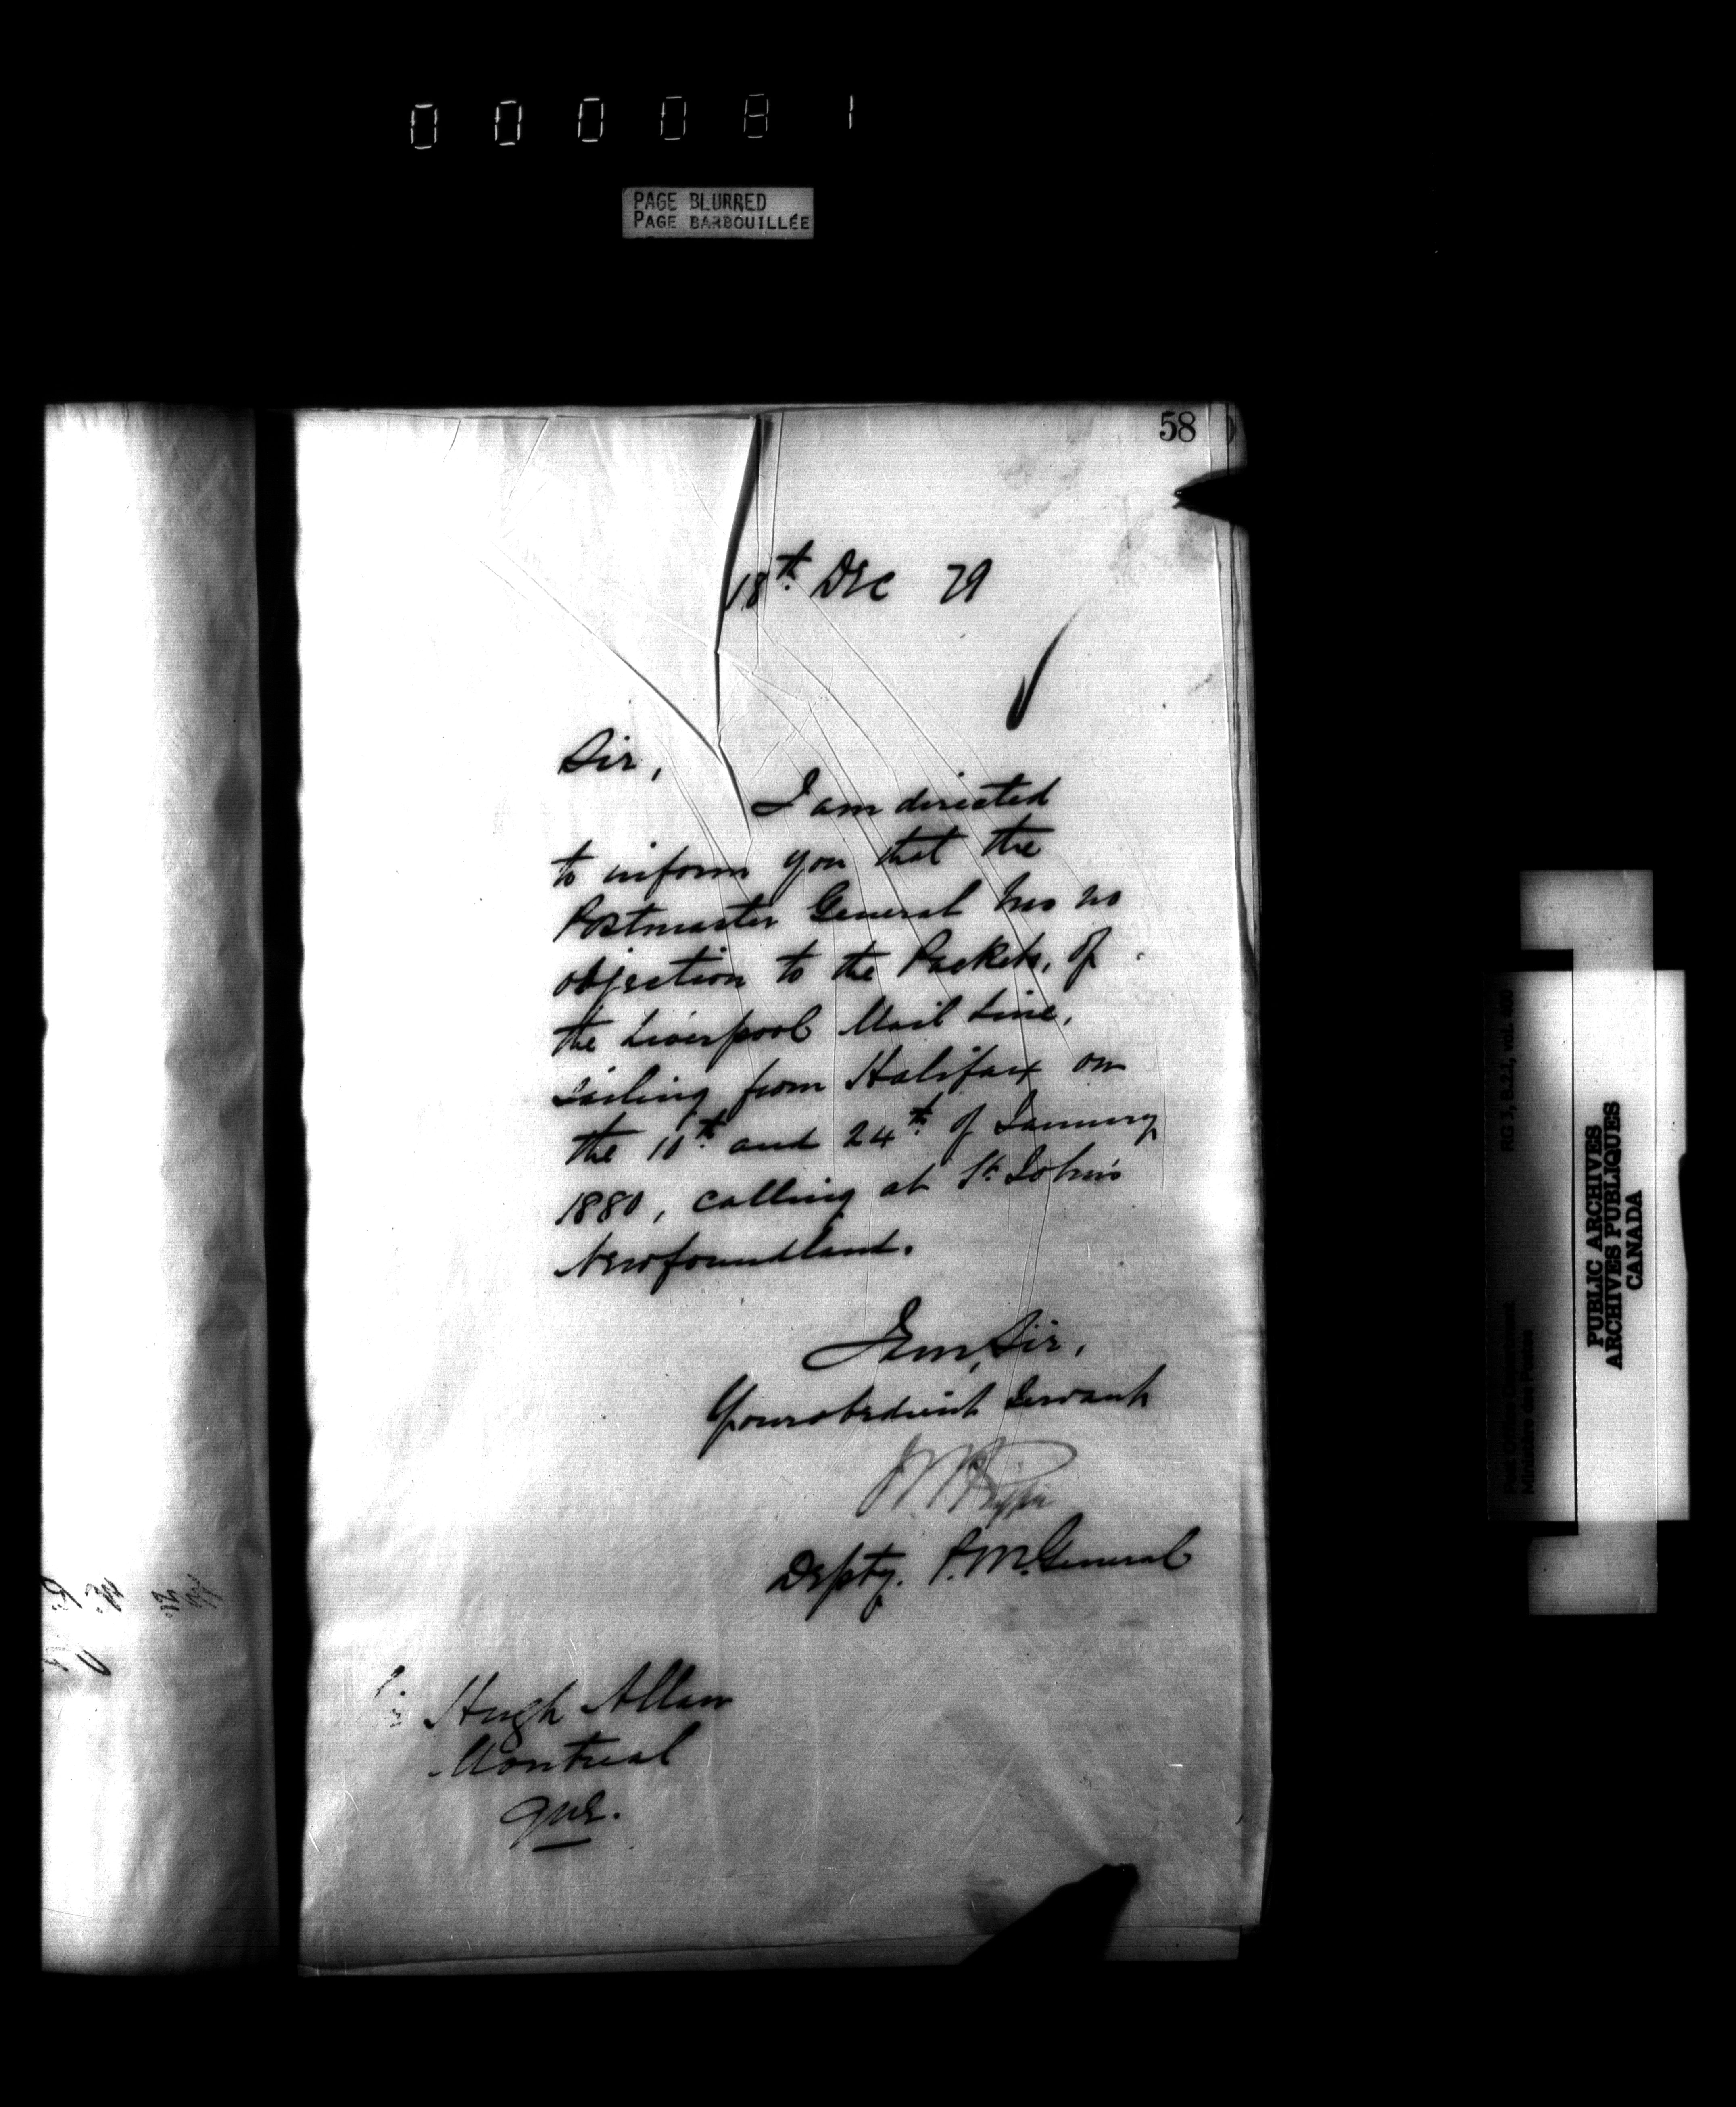 000081
PAGE BLURRED
PAGE BARBOUILLÉE
58
18th Dec 79
Sir,
I am directed
to inform you that the
Postmaster General has no
objection to the Packets, of
the Liverpool Mail Line,
sailing from Halifax on
the 10th and 24th of January
1880, calling at St. John's
Newfoundland.
I am, Sir,
Your obedient Servant
Depty. P. M. General
Hugh Allan
Montreal
Que.
RG 3, B-2-1, vol. 400
Post Office Department
Ministère des Postes
PUBLIC ARCHIVES
ARCHIVES PUBLIQUES
CANADA